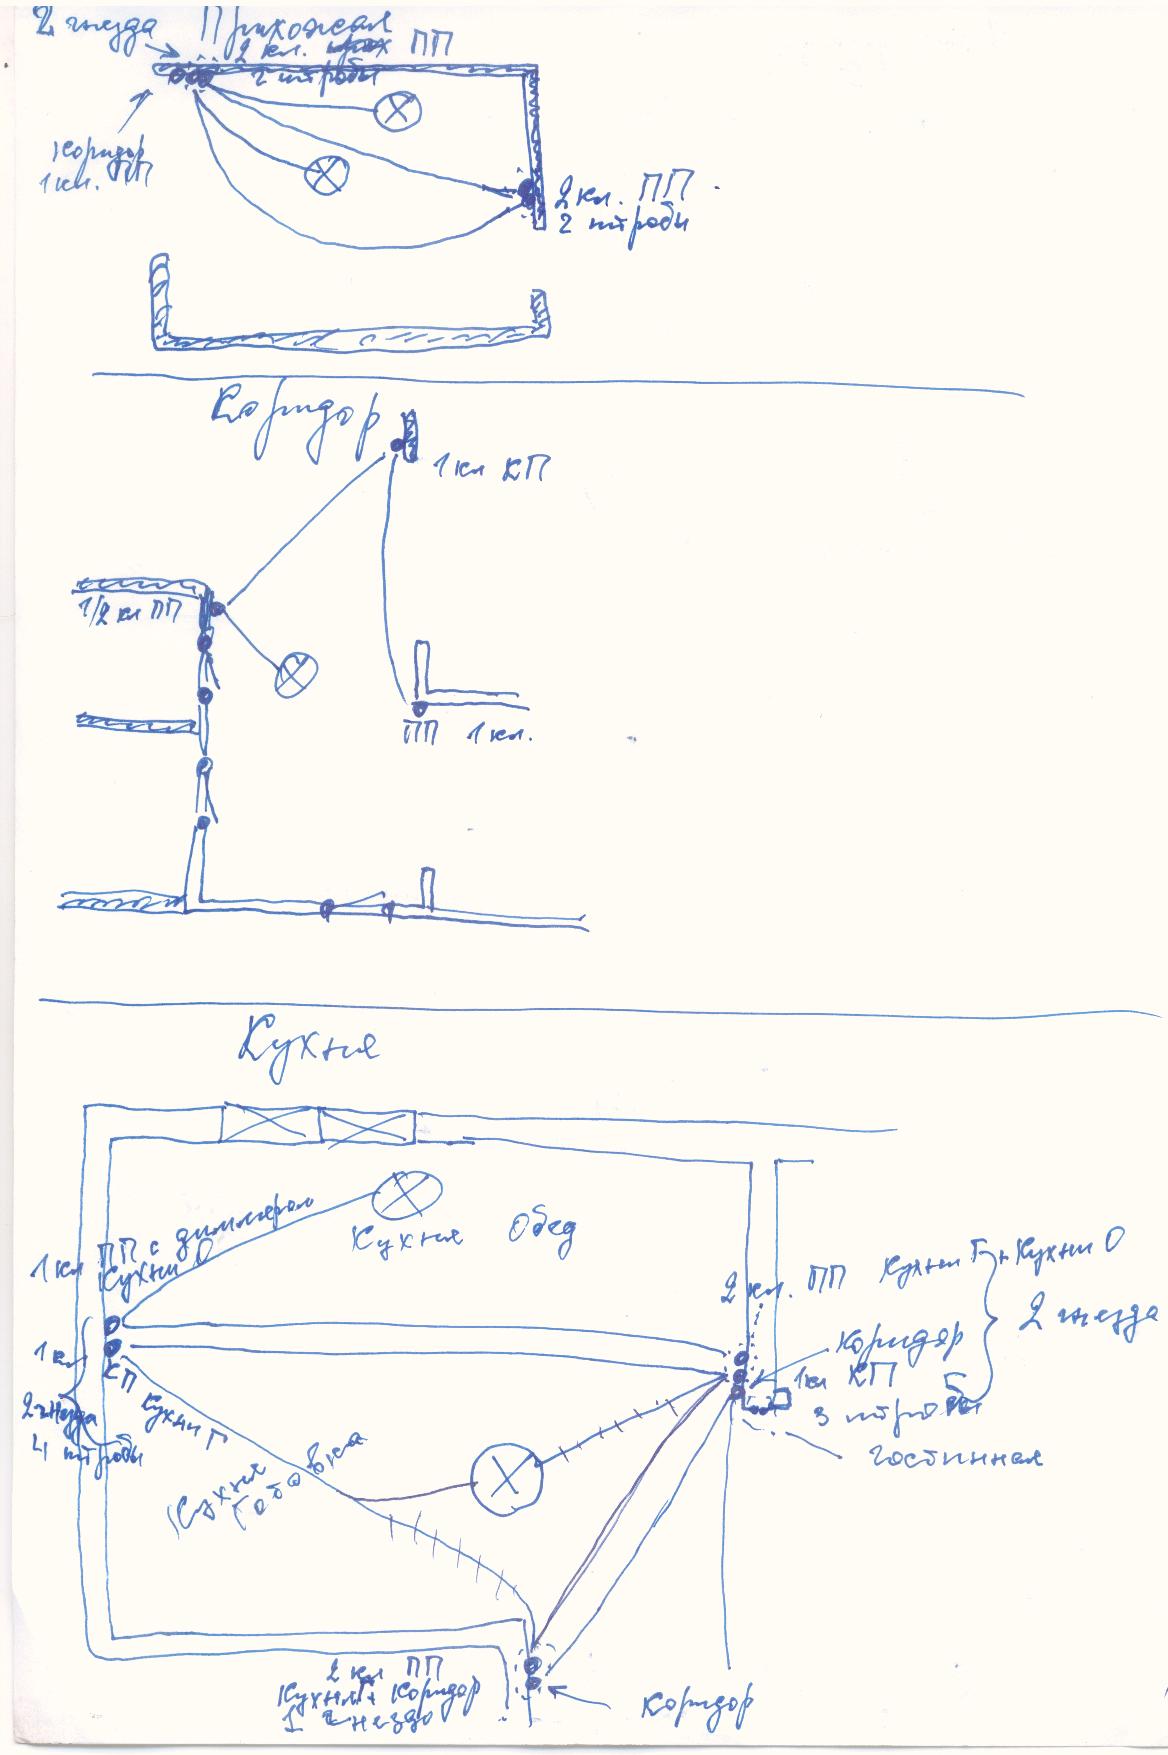 2 гнезда
Прихожая
2 кл. ПП
2 штробы
Коридор
1 кл. ПП
2 кл. ПП
2 штробы
Коридор
1 кл КП
1/2 кл ПП
ПП 1 кл.
Кухня
1 кл ПП с диммером
Кухни О
Кухня Обед
2 кл. ПП Кухни Г + Кухни О
2 гнезда
Коридор
1 кл КП
3 штробы
гостинная
1 кл
СП Кухни Г
2 гнезда
4 штробы
Кухня
Готовка
2 кл ПП
Кухня Г + Коридор
1 гнездо
Коридор